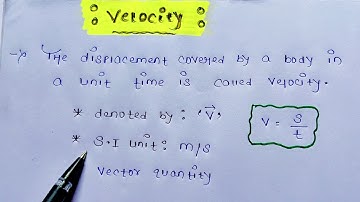 : Velocity :
→ The displacement covered by a body in
a unit time is called velocity.
* denoted by : 'V⃗'
* S.I unit : m/s
Vector quantity
V = S/t